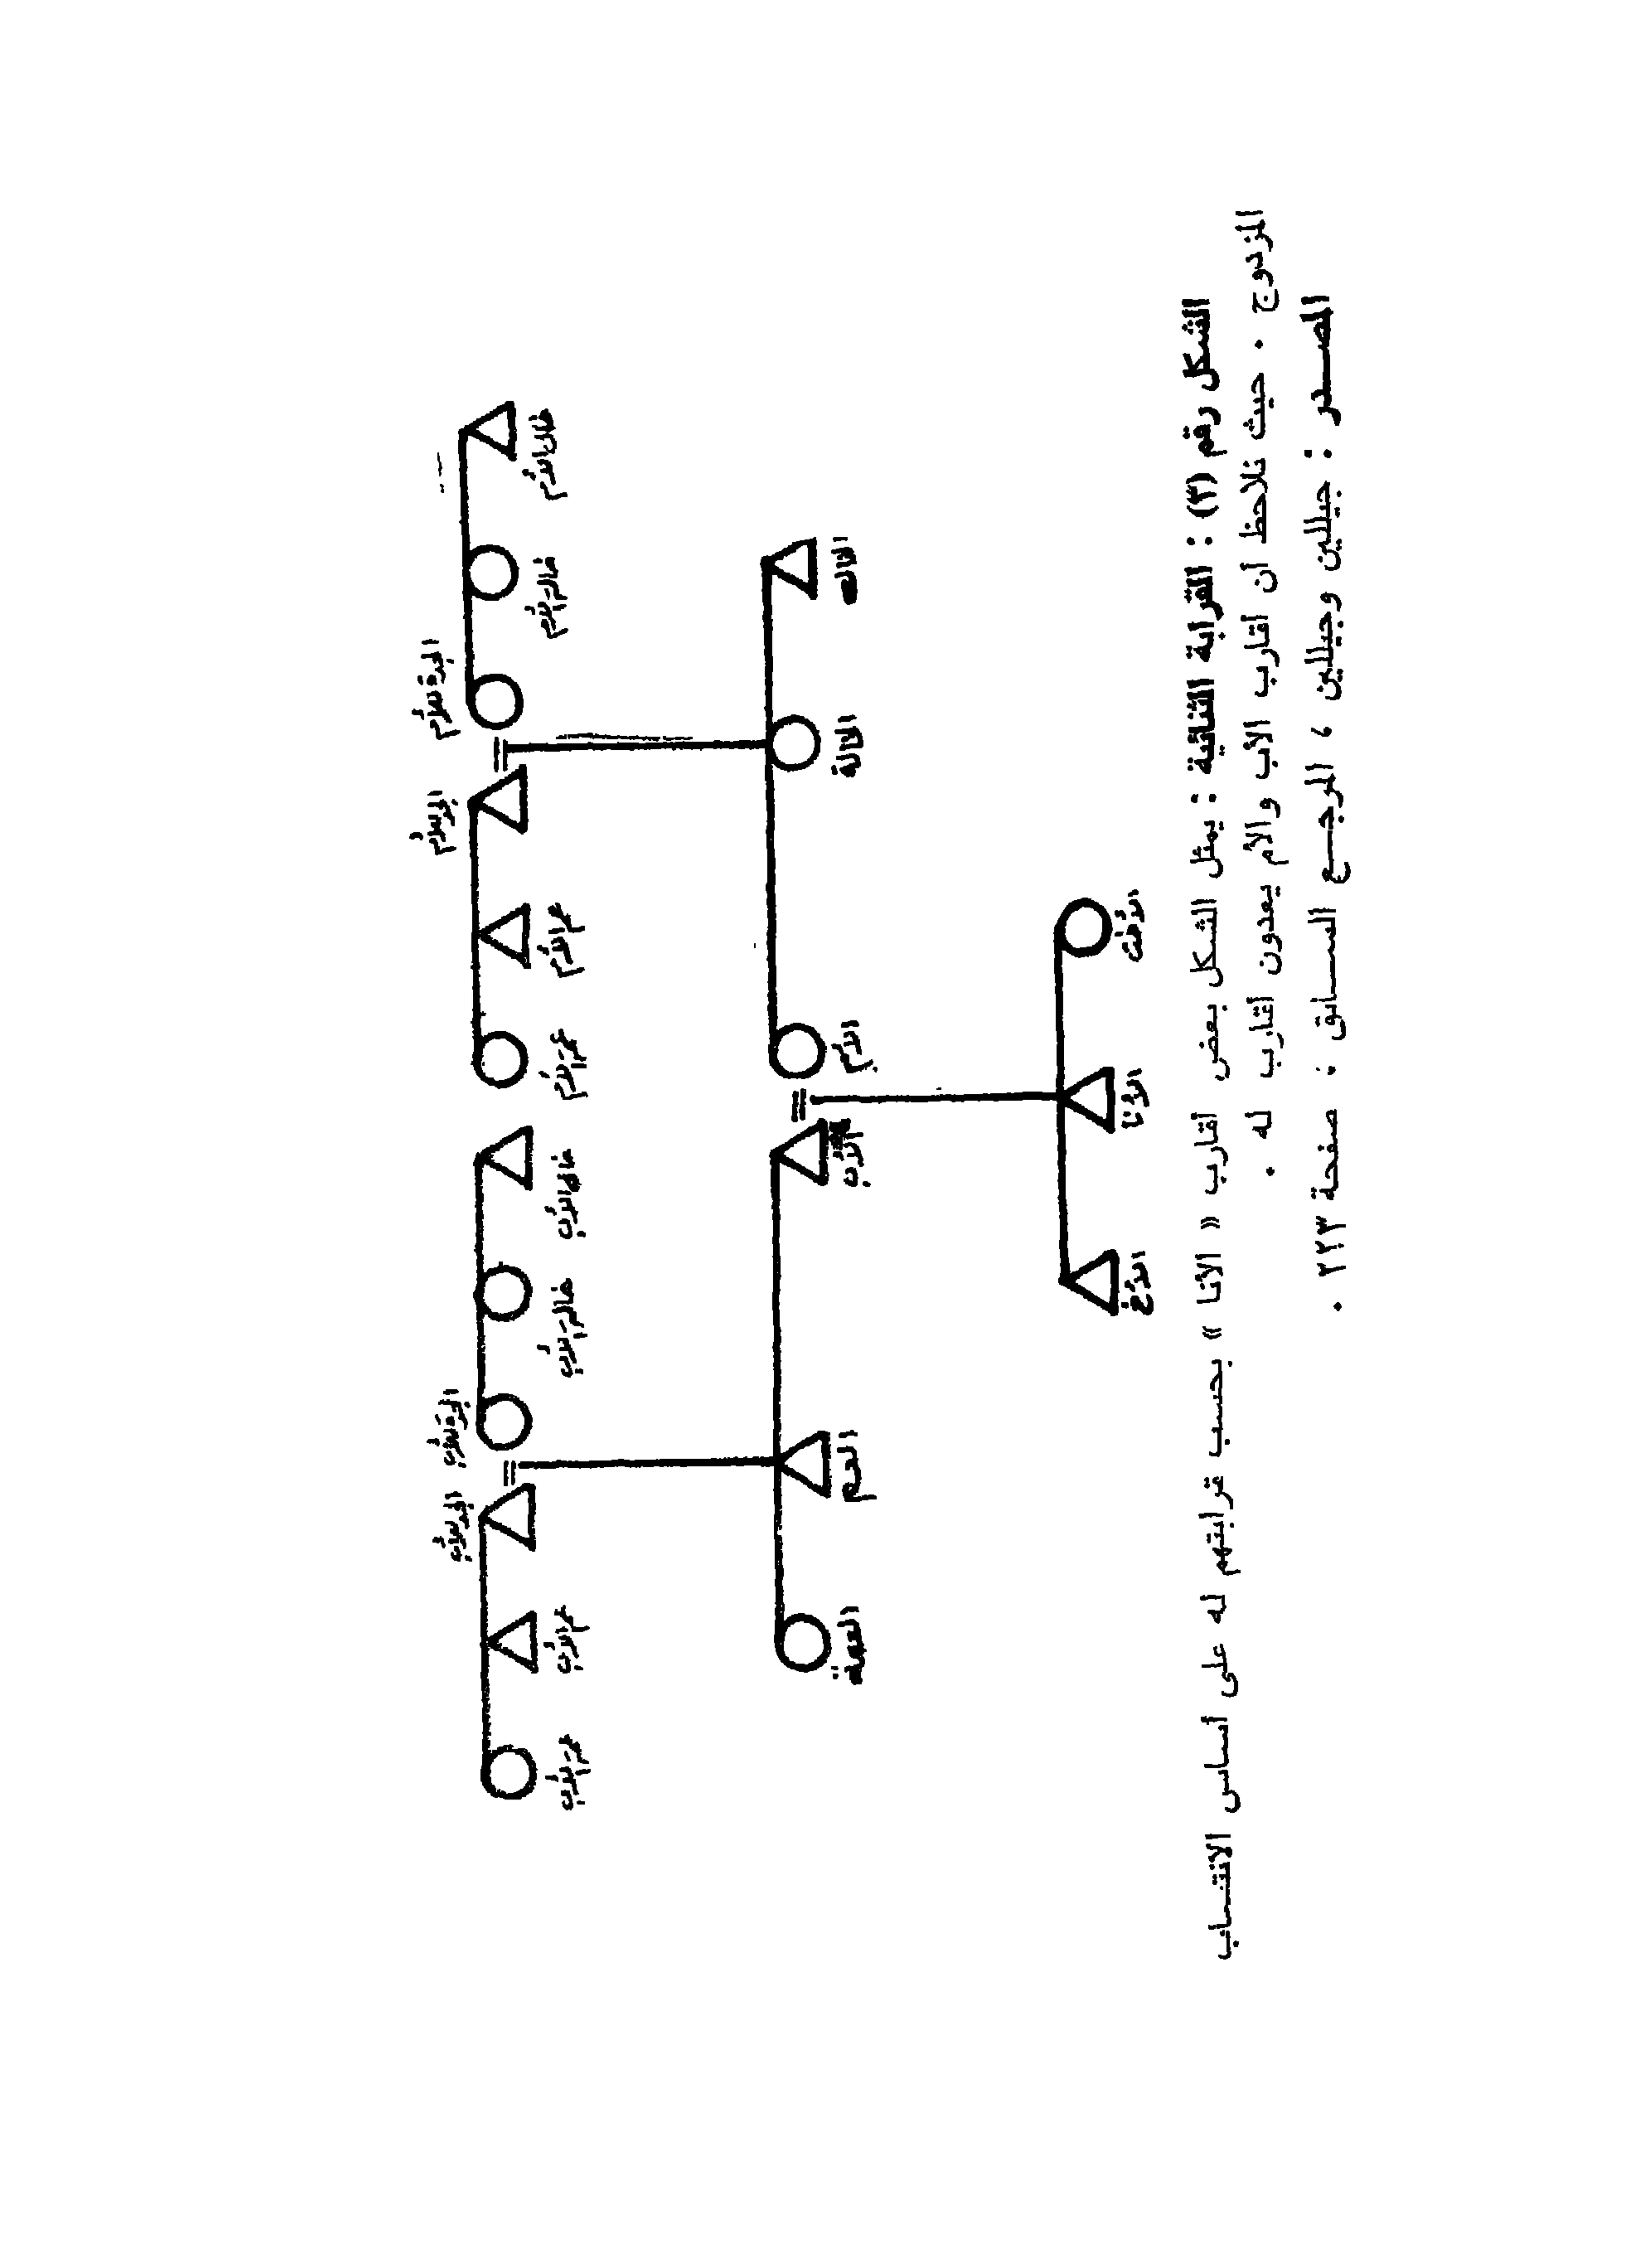 الجدة للأم
الجد للأم
الجدة للأب
الجد للأب
خال الأم
خالة الأم
عم الأم
عمة الأم
خال الأب
خالة الأب
عم الأب
عمة الأب
الخال
الخالة
الأم
الأب
العم
العمة
الأخت
الأنا
الأخ
الشكل رقم (٣) : القرابة الثنائية : يمثل الشكل بعض أقارب « الأنا » بحسب قرابتهم له على أساس الانتساب
المزدوج . حيث نلاحظ أن أقارب الأب والأم يعدون أقارب له .
المصدر : جيللين وجيللين ، المرجع السابق ؛ صفحة ٢٢٣ .